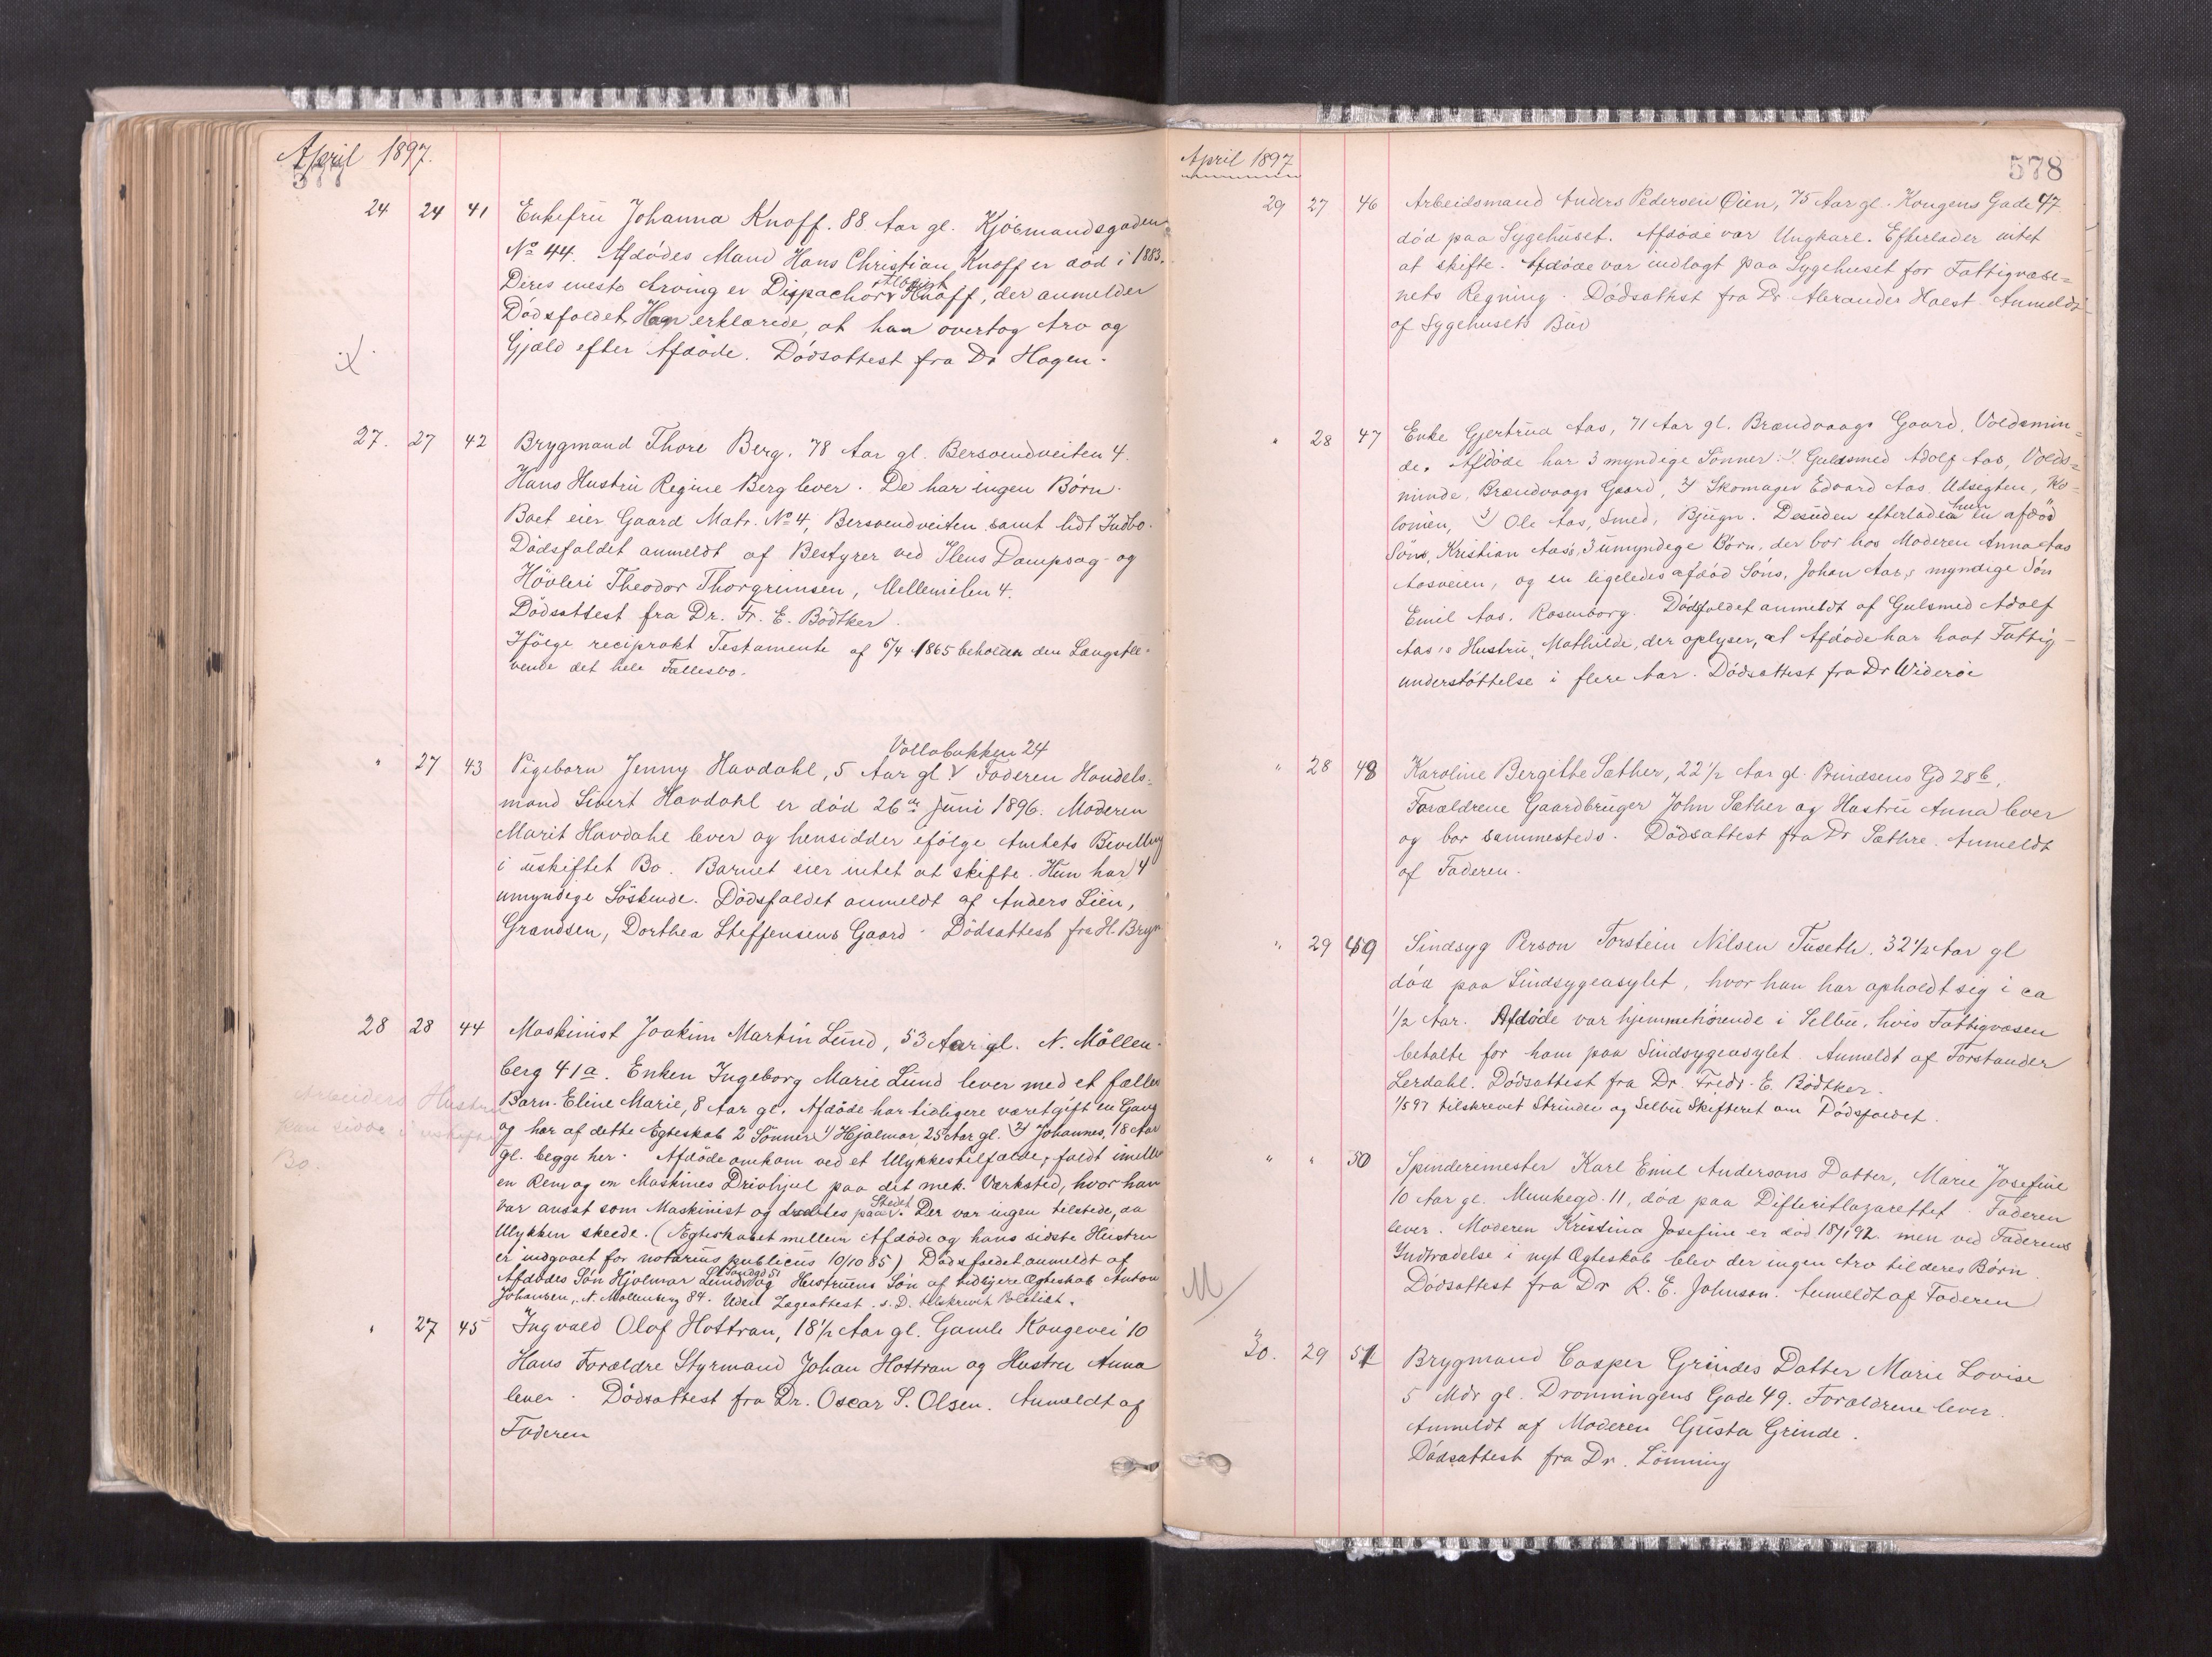 April 1897.
577
24 24 41 Enkefru Johanna Knoff. 88 Aar gl. Kjöbmandsgaden
No 44. Afdödes Mand Hans Christian Knoff er död i 1883.
Deres eneste Arving er Dispachör Knoff, der anmelder
Dödsfaldet. Han erklærede, at han overtog Arv og
Gjæld efter Afdöde. Dödsattest fra Dr Hagen.
27. 27 42 Brygmand Thore Berg. 78 Aar gl. Bersvendveiten 4.
Hans Hustru Regine Berg lever. De har ingen Börn.
Boet eier Gaard Matr. No 4, Bersvendveiten samt lidt Indbo.
Dödsfaldet anmeldt af Bestyrer ved Ilens Dampsag- og
Hövleri Theodor Thorgrimsen, Mellemilen 4.
Dödsattest fra Dr. Fr. E. Bödtker.
Ifölge reciprokt Testamente af 6/4 1865 beholder den Længstle-
vende det hele Fællesbo.
Vollabakken 24
" 27 43 Pigebarn Jenny Havdahl, 5 Aar gl. Faderen Handels-
mand Sivert Havdahl er död 26de Juni 1896. Moderen
Marit Havdahl lever og hensidder efölge Amtets Bevilling
i uskiftet Bo. Barnet eier intet at skifte. Hun har 4
umyndige Söskende. Dödsfaldet anmeldt af Anders Lien,
Grandsen, Dorthea Steffensens Gaard. Dödsattest fra H. Bryn
28 28 44 Maskinist Joakim Martin Lund, 53 Aar gl. N. Möllen-
berg 41a. Enken Ingeborg Marie Lund lever med et fælles
Barn Eline Marie, 8 Aar gl. Afdöde har tidligere været gift en Gang
Arbeiders Hustru
kan sidde i uskiftet
Bo.
og har af dette Egteskab 2 Sönner 1) Hjalmar, 25 Aar gl. 2) Johannes, 18 Aar
gl. begge her. Afdöde omkom ved et Ulykkestilfælde, faldt imellem
en Rem og en Maskines Drivhjul paa det mek. Værksted, hvor han
var ansat som Maskinist og dræbtes paa Stedet. Der var ingen tilstede, da
Ulykken skeede. (Ægteskabet mellem Afdöde og hans sidste Hustru
er indgaaet for notarius publicus 10/10 85) Dödsfaldet anmeldt af
Afdödes Sön Hjalmar Lund og Hustruens Sön af tidligere Ægteskab Anton
Johansen, N. Möllenberg 84. Uden Lægeattest. s. D. tilskrevet Politiet.
" 27 45 Ingvald Olaf Hottran, 18½ Aar gl. Gamle Kongevei 10
Hans Forældre Styrmand Johan Hottran og Hustru Anna
lever. Dödsattest fra Dr. Oscar S. Olsen. Anmeldt af
Faderen
April 1897
578
29 27 46 Arbeidsmand Anders Pedersen Öien, 75 Aar gl. Kongens Gade 47
död paa Sygehuset. Afdöde var Ungkarl. Efterlader intet
at skifte. Afdöde var indlagt paa Sygehuset for Fattigvæse-
nets Regning. Dödsattest fra Dr. Alexander Holst. Anmeldt
af Sygehusets Bud
" 28 47 Enke Gjertrud Aas, 71 Aar gl. Brændvaags Gaard, Voldsmin-
de. Afdöde har 3 myndige Sönner: 1) Guldsmed Adolf Aas, Volds-
minde, Brændvaags Gaard, 2) Skomager Edvard Aas Udsegten, Ko-
lonien, 3) Ole Aas, Smed, Bjugn. Desuden efterlader hun en afdöd
Söns, Kristian Aas's, 3 umyndege Börn, der bor hos Moderen Anna Aas
Aasveien, og en ligeledes afdöd Söns, Johan Aas's myndige Sön
Emil Aas, Rosenborg. Dödsfaldet anmeldt af Gulsmed Adolf
Aas's Hustru, Mathilde, der oplyser, at Afdöde har havt Fattig-
understöttelse i flere Aar. Dödsattest fra Dr Wideröe
" 28 48 Karoline Bergitte Sæther, 22½ Aar gl. Prindsens Gd 28b,
Forældrene Gaardbruger John Sæther og Hustru Anna lever
og bor sammesteds. Dödsattest fra Dr Sæthre. Anmeldt
af Faderen.
" 29 49 Sindsyg Person Torstein Nilsen Tuseth. 32½ Aar gl
död paa Sindsygeasylet, hvor han har opholdt sig i ca
½ Aar. Afdöde var hjemmehörende i Selbu, hvis Fattigvæsen
betalte for ham paa Sindsygeasylet. Anmeldt af Forstander
Lerdahl. Dödsattest fra Dr. Fredr. E. Bödtker.
1/5 97 tilskrevet Strinden og Selbu Skifteret om Dödsfaldet.
" " 50 Spinderimester Karl Emil Andersons Datter, Marie Josefine
10 Aar gl. Munkegd. 11, död paa Difteritlazarettet. Faderen
lever. Moderen Kristina Josefine er död 18/1 92. men ved Faderens
Indtrædelse i nyt Ægteskab blev der ingen Arv til deres Börn.
Dödsattest fra Dr R. E. Johnson. Anmeldt af Faderen
M/
30. 29 51 Brygmand Casper Grindes Datter Marie Lovise
5 Mdr gl. Dronningens Gade 49. Forældrene lever.
Anmeldt af Moderen Gusta Grinde.
Dödsattest fra Dr. Lönning